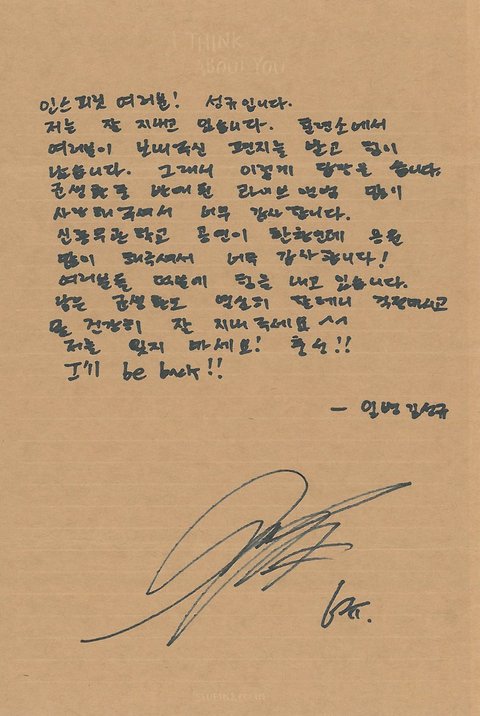 I THINK
ABOUT YOU
인스피릿 여러분! 성규입니다.
저는 잘 지내고 있습니다. 훈련소에서
여러분이 보내주신 편지를 받고 힘이
났습니다. 그래서 이렇게 답장을 씁니다.
군생활중 발매된 라이브앨범 많이
사랑해주셔서 너무 감사합니다.
신흥무관학교 공연이 한창인데 응원
많이 해주셔서 너무 감사합니다!
여러분들 덕분에 힘을 내고 있습니다.
남은 군생활도 열심히 할테니 걱정마시고
말 건강히 잘 지내주세요 ^^
저를 잊지 마세요! 충성!!
I'll be back!!
- 일병 김성규